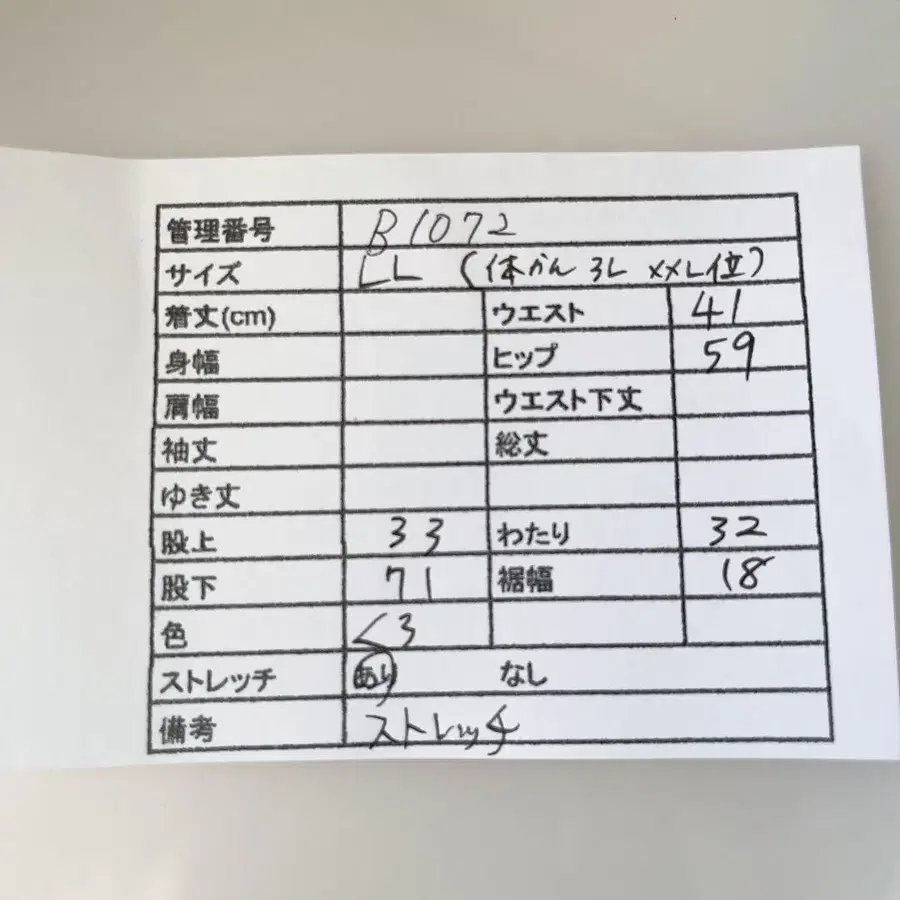 管理番号 B1072
サイズ LL (体かん 3L XXL位)
着丈(cm) ウエスト 41
身幅 ヒップ 59
肩幅 ウエスト下丈
袖丈 総丈
ゆき丈
股上 33 わたり 32
股下 71 裾幅 18
色 くろ
ストレッチ あり なし
備考 ストレッチ